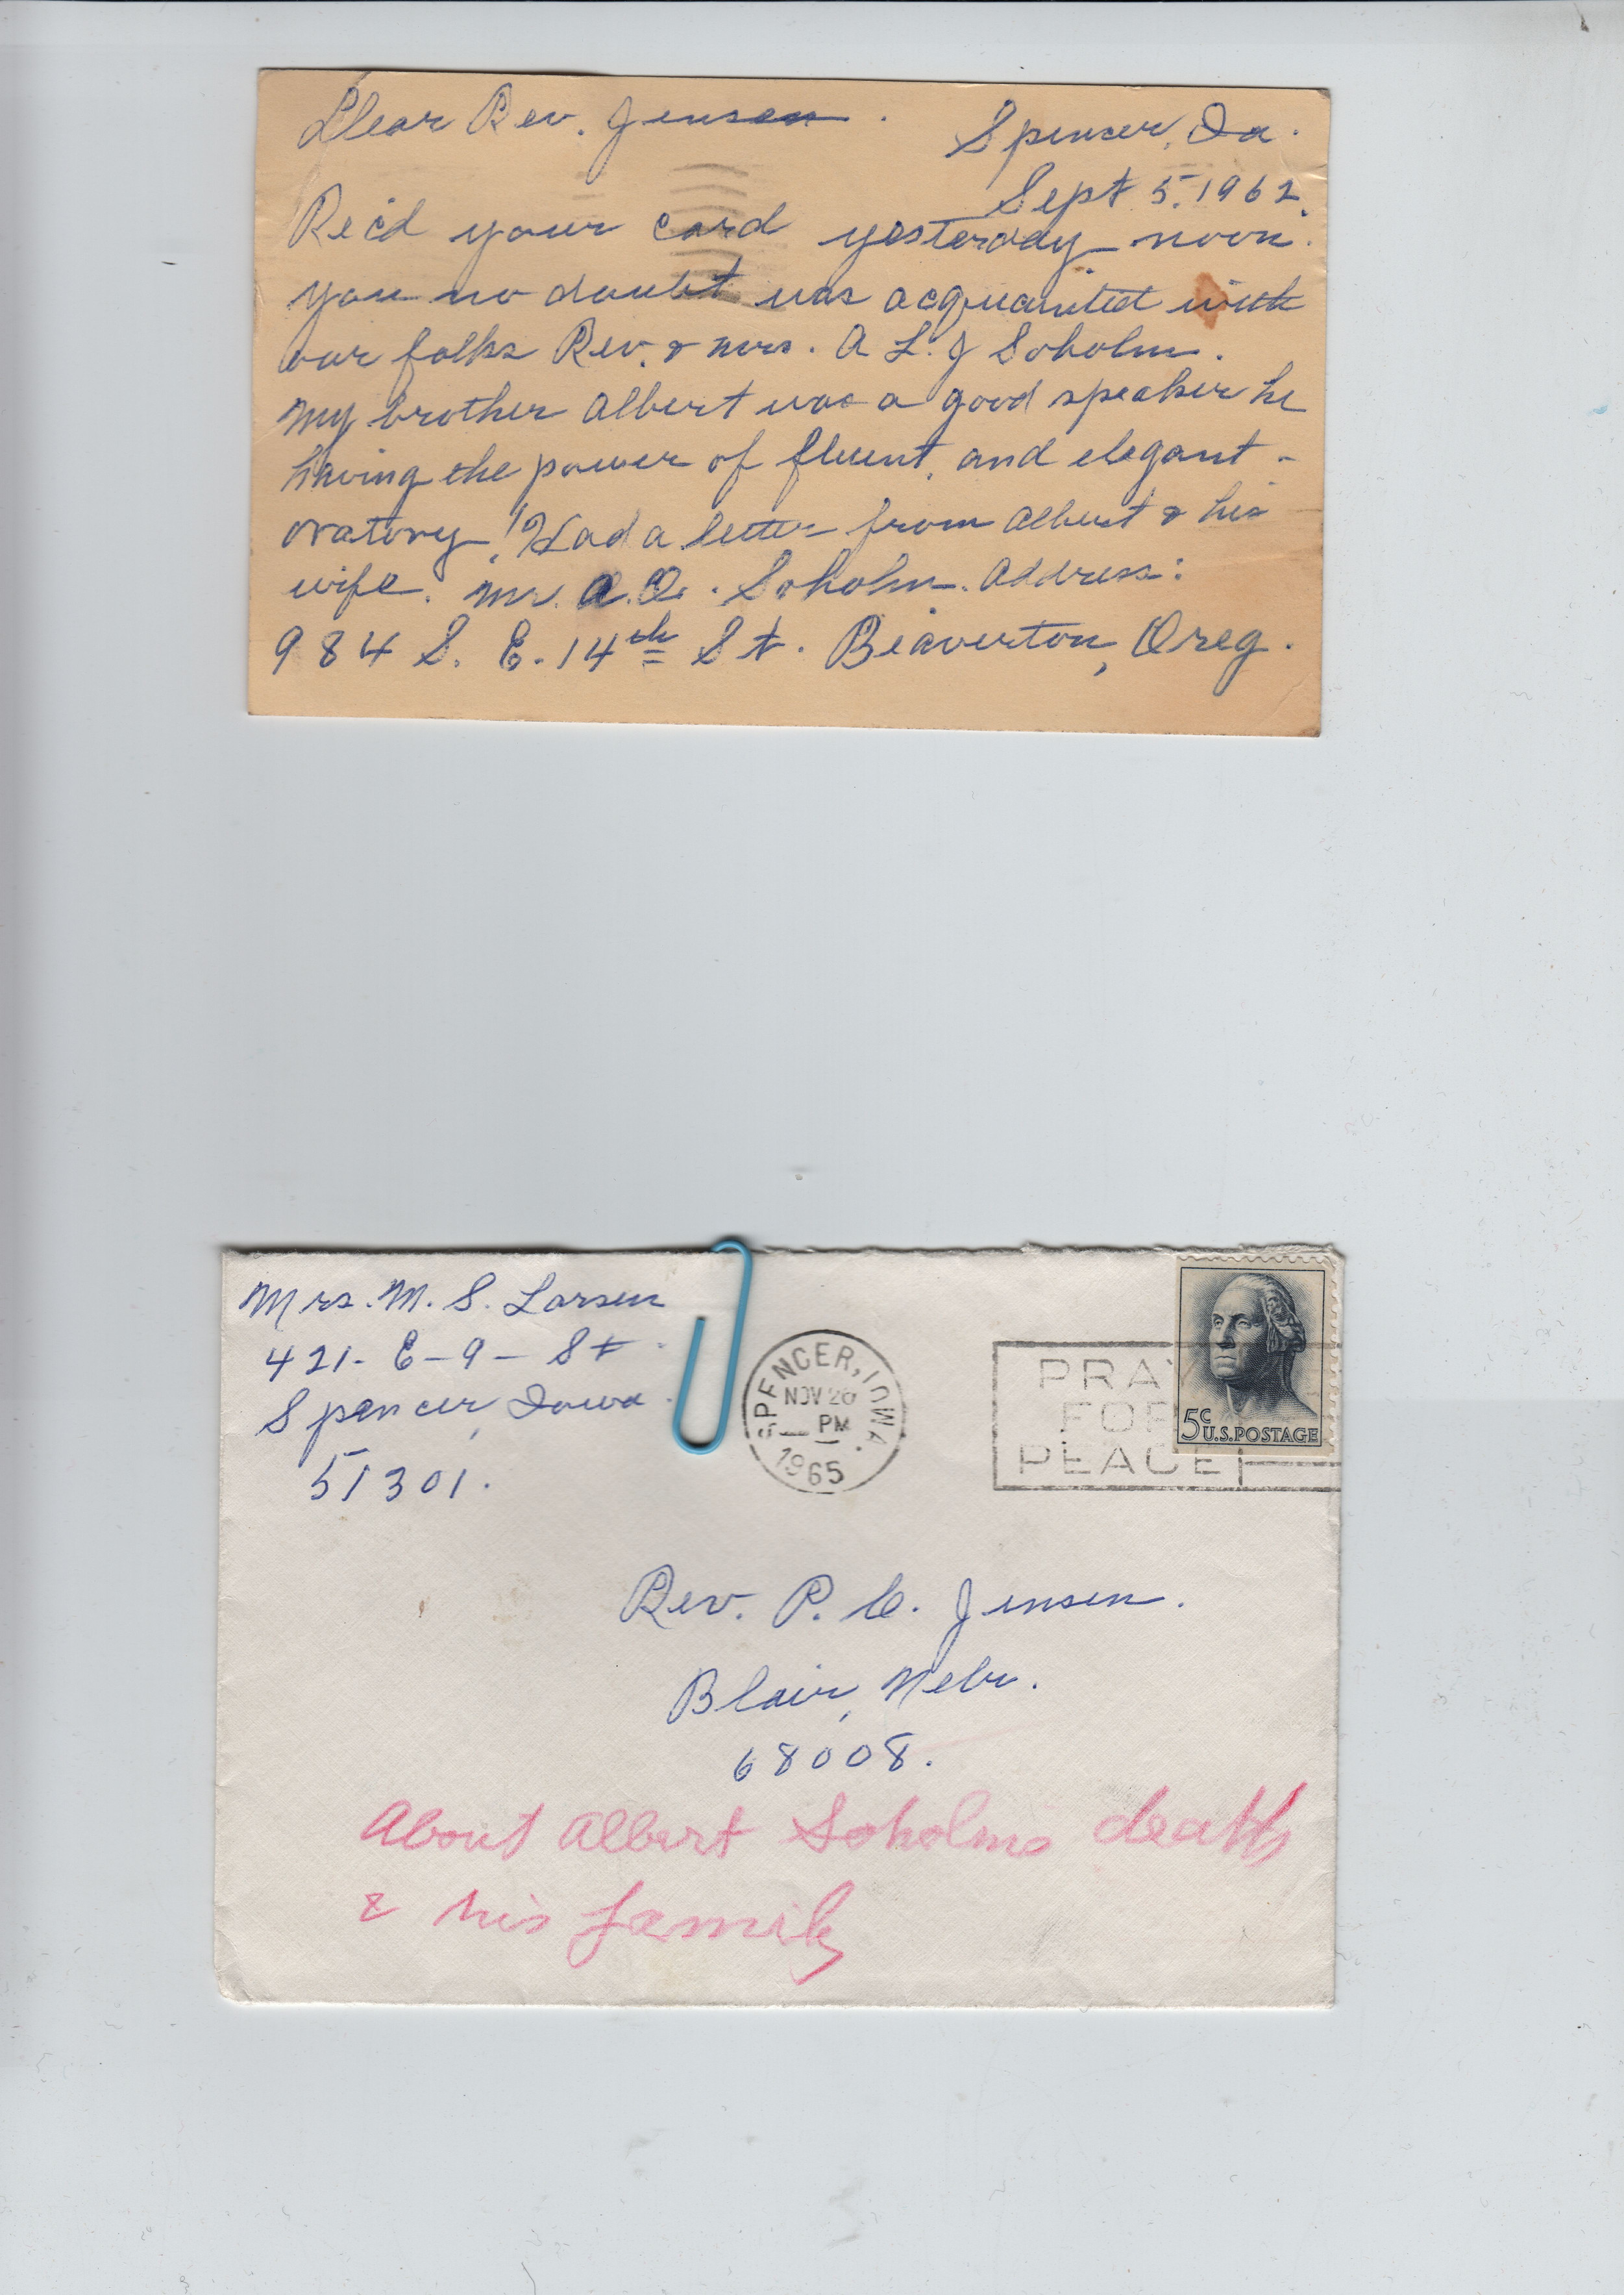 Dear Rev. Jensen.
Spencer, Ia.
Sept 5. 1962.
Rec'd your card yesterday noon.
you no doubt was acquanited with
our folks Rev. & Mrs. A L. J Soholm.
My brother Albert was a good speaker he
having the power of fluent, and elegant -
oratory! Had a letter from Albert & his
wife. Mr. A.O. Soholm. Address:
984 S. E. 14th St. Beaverton, Oreg.
Mrs. M. S. Larsen
421- E-9- St.
Spencer, Iowa.
51301.
SPENCER, IOWA.
NOV 26
PM
1965
PRAY
FOR
PEACE
5c U.S. POSTAGE
Rev. P. C. Jensen.
Blair, Nebr.
68008.
About Albert Soholms death
& his family